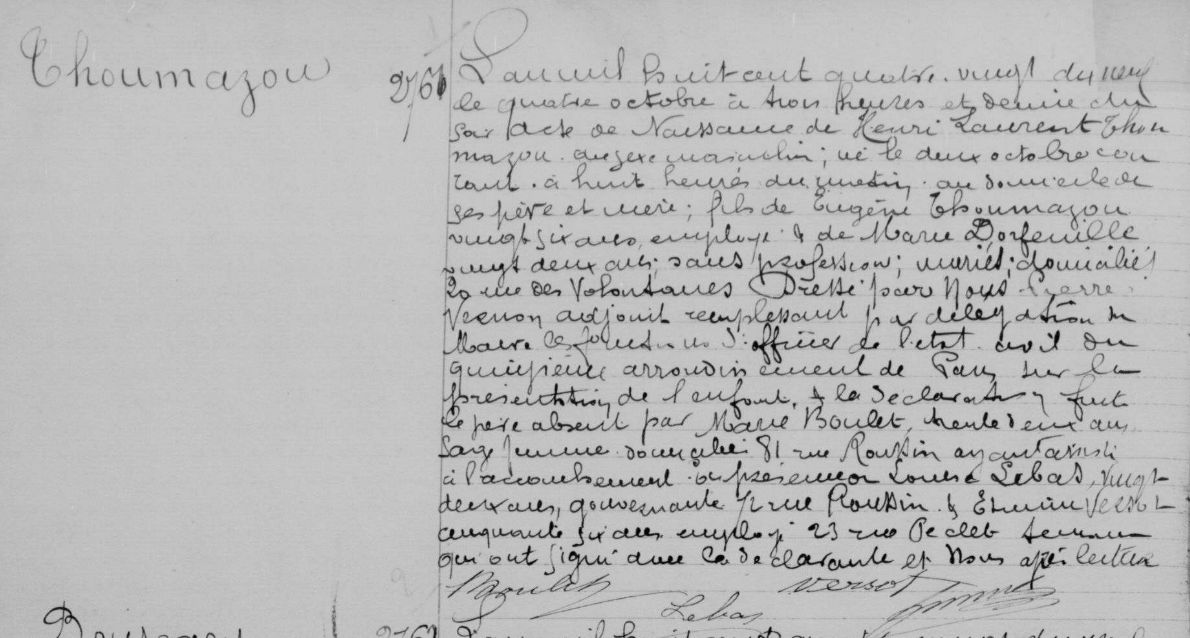 Thoumazou
2761
L'an mil huit cent quatre-vingt dix neuf
le quatre octobre à trois heures et demie du
soir acte de Naissance de Henri Laurent Thou
mazou. du sexe masculin; né le deux octobre cou
rant. à huit heures du matin. au domicile de
ses père et mère; fils de Eugène Thoumazou
vingt six ans, employé & de Marie Dorfeuille
vingt deux ans, sans profession; mariés; domiciliés
20 rue des Volontaires Dressé par Nous Pierre
Vernon adjoint remplissant par délégation du
Maire les fonctions d'officier de l'état civil du
quinzième arrondissement de Paris sur la
présentation de l'enfant, & la déclaration faite
le père absent par Marie Boulet, trente deux ans
sage femme domiciliée 81 rue Roussin ayant assisté
à l'accouchement en présence de Louise Lebas, vingt
deux ans, gouvernante rue Roussin. & Etienne Versot
cinquante six ans employé 23 rue Peclet témoins
qui ont signé avec la déclarante et Nous après lecture
Boulet Versot
Lebas
L'an mil huit cent quatre vingt dix neuf